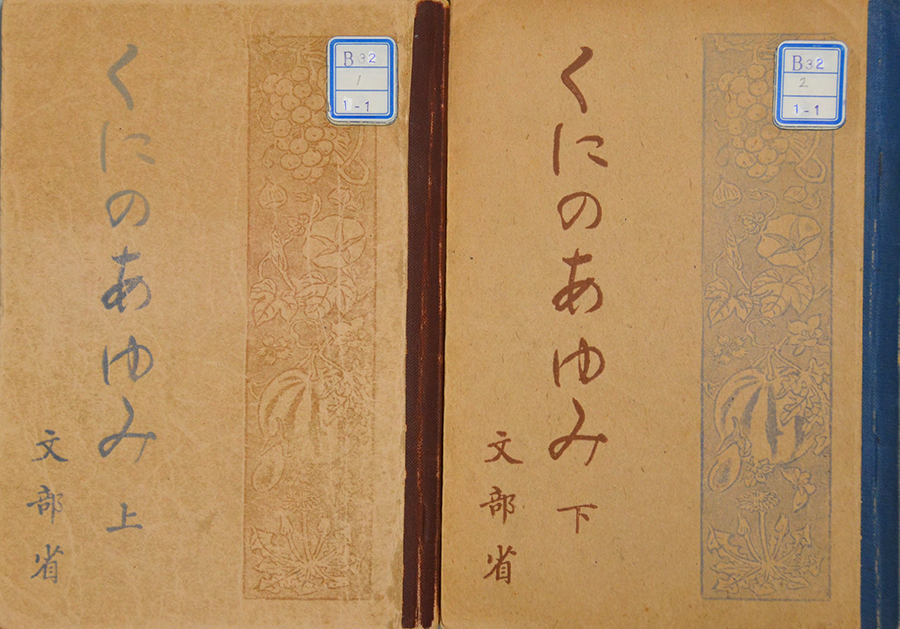 くにのあゆみ 上
文部省
B32
1
1-1
くにのあゆみ 下
文部省
B32
2
1-1